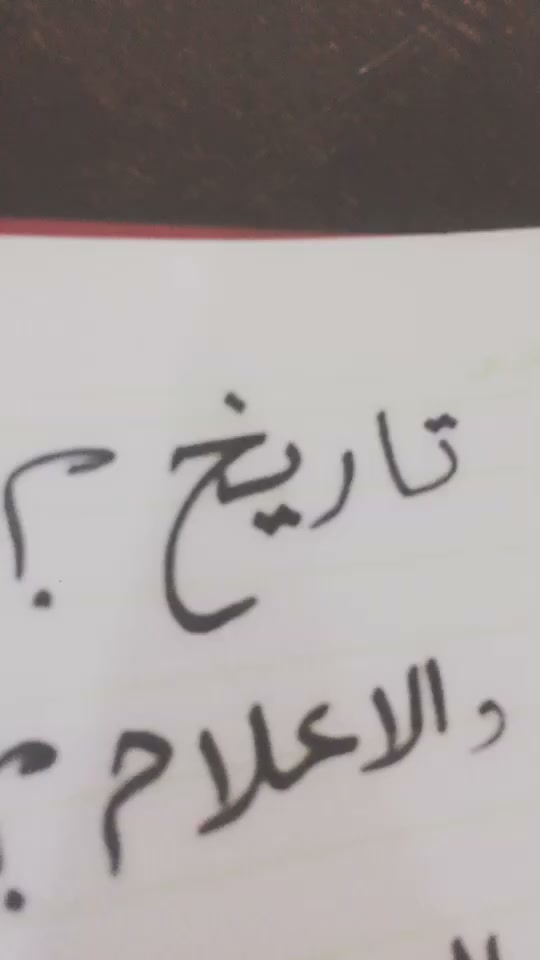 تاريخ ؟
والاعلام ؟